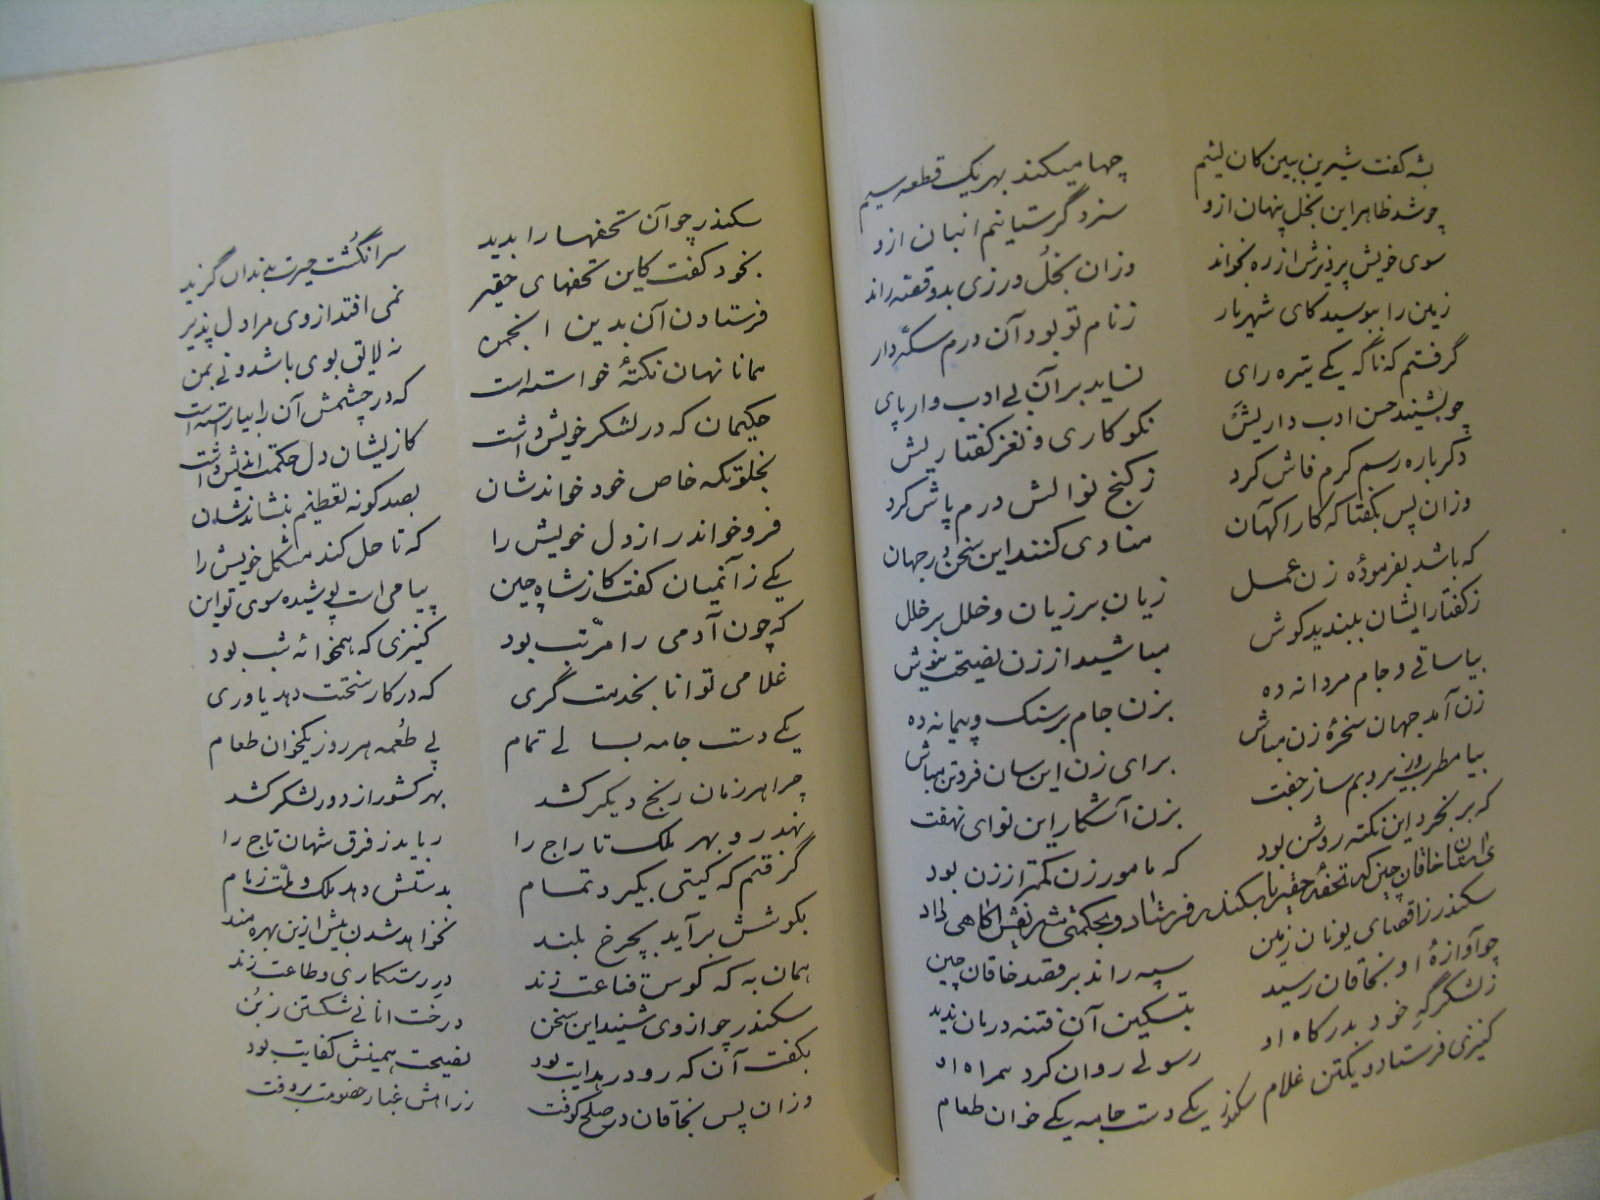 بشه گفت شیرین ببین کان لئیم چها میکند بهر یک قطعه سیم
چو شد ظاهر این بخل پنهان ازو سزد گر ستانیم انبان ازو
سوی خویش پر ز پرش از ره بخواند وزان بخل ورزی بدو قصه راند
زمین را ببوسید کای شهریار ز نام تو بود آن درم سکه‌دار
گرفتم که ناگه یکی تیره رای نساید بر آن بی ادب وار پای
چو بشنید حسن ادب داریش نکوکاری و نغز گفتاریش
دگرباره رسم کرم فاش کرد ز گنج نوالش درم پاش کرد
وزان پس بگفتا که کارآگهان منادی کنند این سخن در جهان
که باشد بفرمودهٔ زن عمل زیان بر زیان و خلل بر خلل
ز گفتار ایشان ببندید گوش مباشید از زن نصیحت نیوش
بیا ساقی و جام مردانه ده بزن جام بر سنگ و پیمانه ده
زن آمد جهان سخرهٔ زن مباش برای زن این سان فروتن مباش
بیا مطرب و زیر و بم ساز جفت بزن آشکار این نوای نهفت
که بر بخرد این نکته روشن بود که مامور زن کمتر از زن بود
خاقان چین که تحفهٔ حقیر با سکندر فرستاد و بحکمتی آگاهی داد
سکندر ز اقصای یونان زمین سپه راند بر قصد خاقان چین
چو آوازهٔ او بخاقان رسید بتسکین آن فتنه درمان ندید
ز لشکرگه خود بدرگاه او رسولی روان کرد همراه او
کنیزی فرستاد و یکتن غلام یکی دست جامه یکی خوان طعام
سکندر چو آن تحفها را بدید سر انگشت حیرت بدندان گزید
بخود گفت کاین تحفهای حقیر نمی افتد از وی مرا دل پذیر
فرستادن آن بدین انجمن نه لایق بوی باشد و نی بمن
همانا نهان نکتهٔ خواسته است که در چشمش آن را بیاراسته است
حکیمان که در لشکر خویش داشت کازیشان دل حکمت اندیش داشت
بخلوتگه خاص خود خواندشان بصد گونه تعظیم بنشاندشان
فرو خواند راز دل خویش را که تا حل کند مشکل خویش را
یکی زآنمیان گفت کاز شاه چین پیامی است پوشیده سوی تو این
که چون آدمی را مرتب بود کنیزی که همخوابهٔ شب بود
غلامی توانا بخدمت گری که در کار سختت دهد یاوری
یکی دست جامه بسالی تمام پی طعمه هر روز یکخوان طعام
چرا هر زمان رنج دیگر کشد بهر کشور از دور لشکر کشد
نهد رو بهر ملک تاراج را رباید ز فرق شهان تاج را
گرفتم که گیتی بگیرد تمام بدستش دهد ملک و ملت زمام
بکوشش برآید بچرخ بلند نخواهد شدن بیش ازین بهره مند
همان به که کوس قناعت زند در رستکاری و طاعت زند
سکندر چو از وی شنید این سخن درخت انانی شکستن ز بن
بگفت آن که رو در هدایت بود نصیحت همینش کفایت بود
وزان پس بخاقان در صلح کوفت ز راهش غبار خصومت بروفت